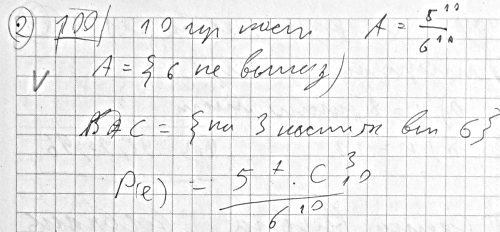 ② 100 10 игр кости A = 5^10 / 6^10
V A = { 6 не выпад }
C = { на 3 костях вып 6 }
P(C) = 5^7 · C_10^3 / 6^10